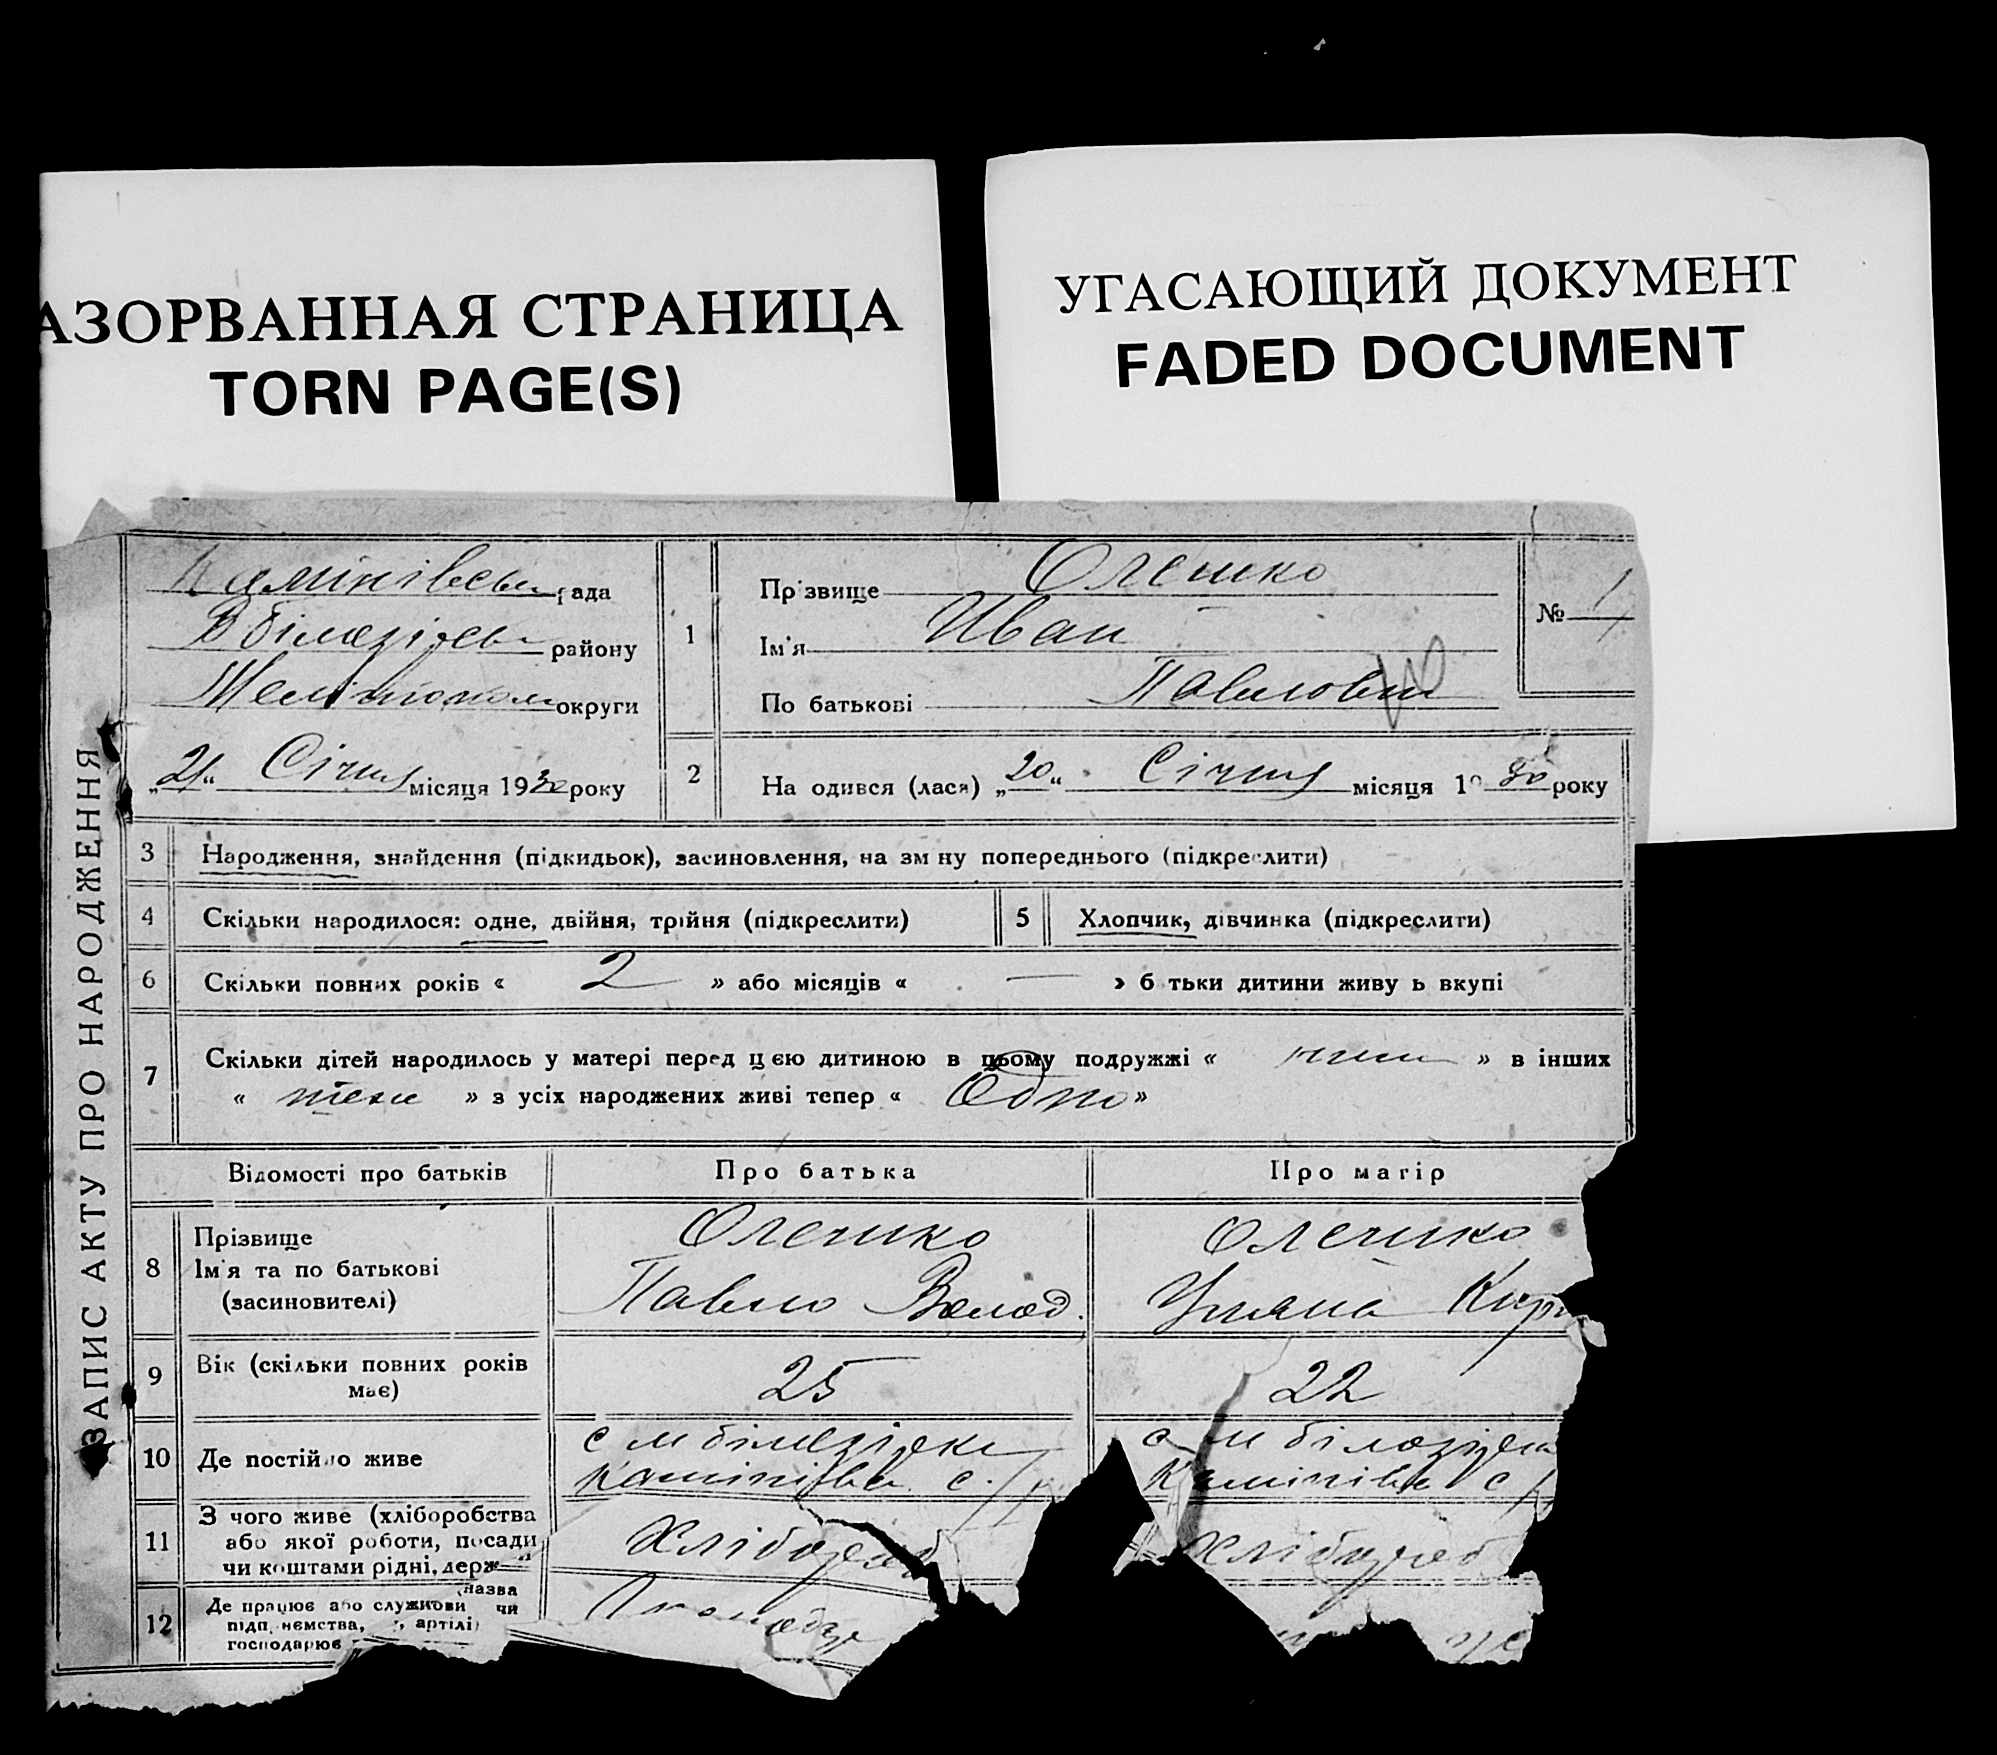 АЗОРВАННАЯ СТРАНИЦА
TORN PAGE(S)
УГАСАЮЩИЙ ДОКУМЕНТ
FADED DOCUMENT
ЗАПИС АКТУ ПРО НАРОДЖЕННЯ
рада
району
округи
"21" Січня місяця 1930 року
1
Прізвище Олешко
Ім'я Иван
По батькові Павлович
№ 1
2
На одився (лася) "20" Січня місяця 19 30 року
3 Народження, знайдення (підкидьок), засиновлення, на зм ну попереднього (підкреслити)
4 Скільки народилося: одне, двійня, трійня (підкреслити)
5 Хлопчик, дівчинка (підкреслити)
6 Скільки повних років « 2 » або місяців « — » б тьки дитини живу ь вкупі
7 Скільки дітей народилось у матері перед цєю дитиною в цьому подружжі « » в інших
« » з усіх народжених живі тепер « Одно »
Відомості про батьків
Про батька
Про матір
8 Прізвище
Ім'я та по батькові
(засиновителі)
Олешко
Павло Волод.
Олешко
Уляна Кир
9 Вік (скільки повних років
має)
25
22
10 Де постійно живе
с м білозірка
Камінівка с/р
с м білозірка
Камінівка с/р
11 З чого живе (хліборобства
або якої роботи, посади
чи коштами рідні, держ
Хлібороб
Хлібороб
12 Де працює або служиови (назва
підп иємства, чи артілі)
господарює